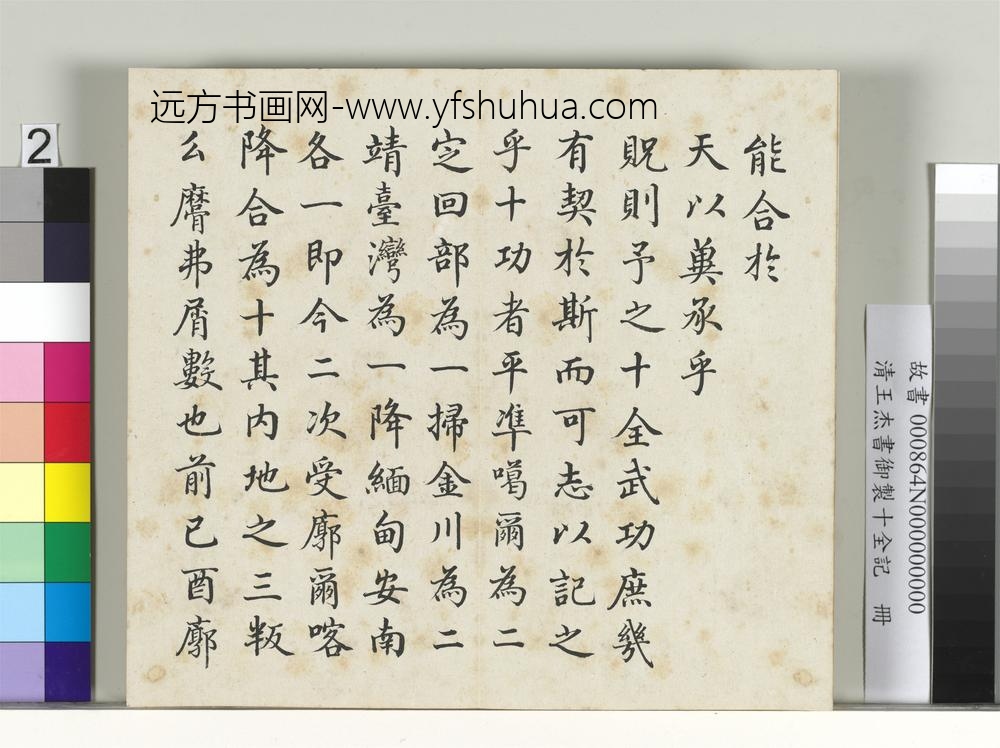 远方书画网-www.yfshuhua.com
2
能合於
天以冀承乎
貺則予之十全武功庶幾
有契於斯而可志以記之
乎十功者平準噶爾為二
定回部為一掃金川為二
靖臺灣為一降緬甸安南
各一即今二次受廓爾喀
降合為十其内地之三叛
么膺弗屑數也前已酉廓
故書 000864N000000000
清王杰書御製十全記 冊